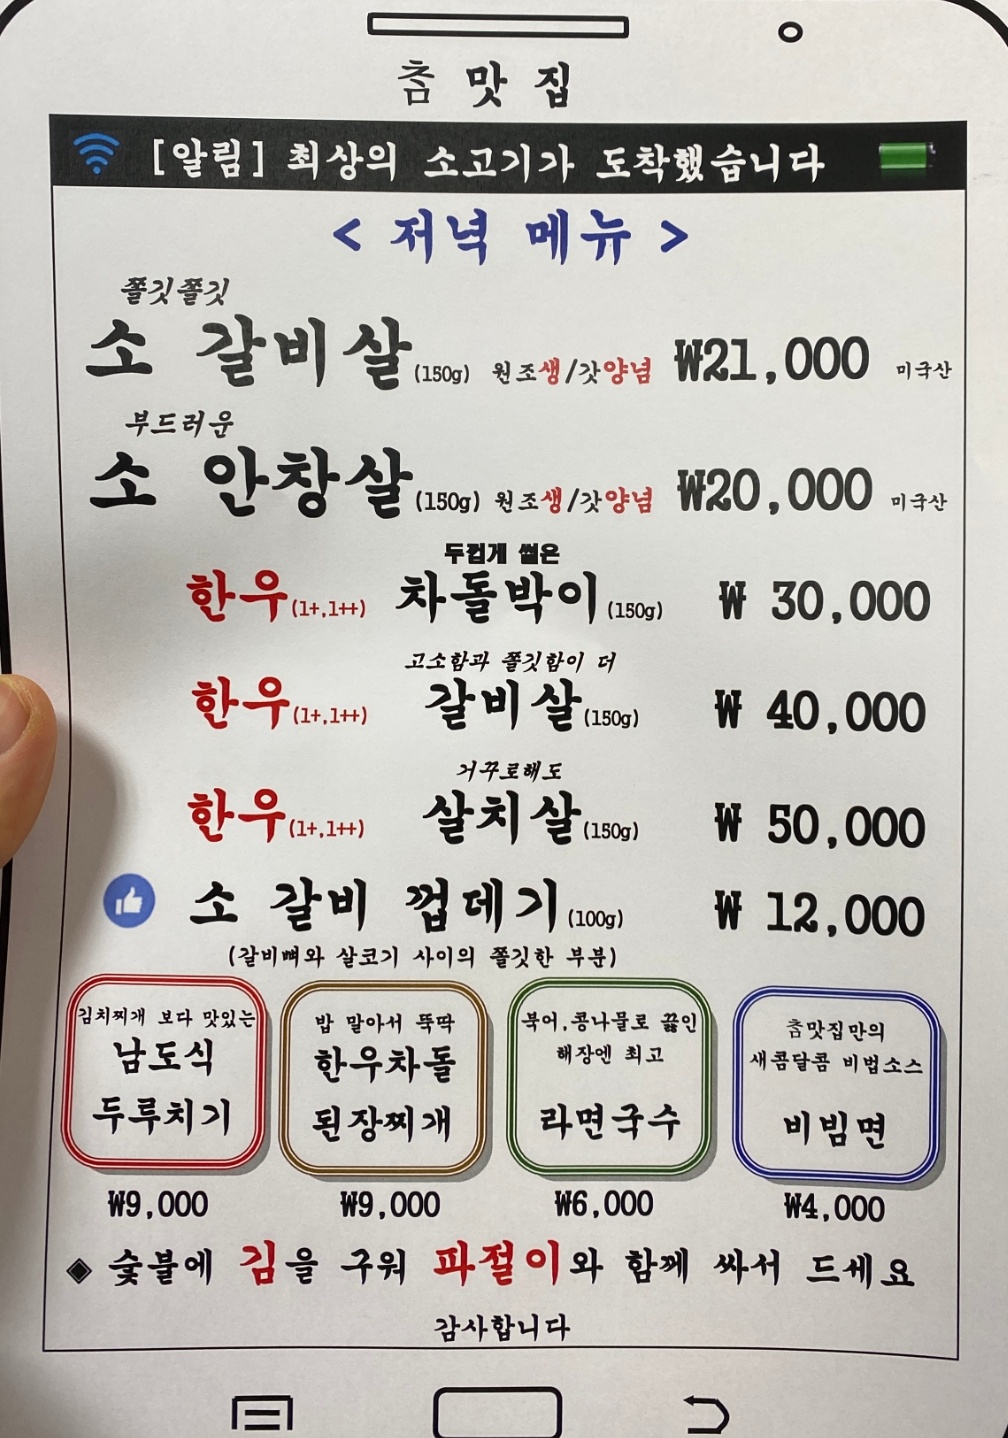 촘맛집
[알림] 최상의 소고기가 도착했습니다
< 저녁 메뉴 >
쫄깃쫄깃
소 갈비살(150g) 원조생/갓양념 ₩21,000 미국산
부드러운
소 안창살(150g) 원조생/갓양념 ₩20,000 미국산
두껍게 썰은
한우(1+,1++) 차돌박이(150g) ₩ 30,000
고소함과 쫄깃함이 더
한우(1+,1++) 갈비살(150g) ₩ 40,000
거꾸로해도
한우(1+,1++) 살치살(150g) ₩ 50,000
소 갈비 껍데기(100g) ₩ 12,000
(갈비뼈와 살코기 사이의 쫄깃한 부분)
김치찌개 보다 맛있는
남도식
두루치기
₩9,000
밥 말아서 뚝딱
한우차돌
된장찌개
₩9,000
북어,콩나물로 끓인
해장엔 최고
라면국수
₩6,000
촘맛집만의
새콤달콤 비법소스
비빔면
₩4,000
◈ 숯불에 김을 구워 파절이와 함께 싸서 드세요
감사합니다